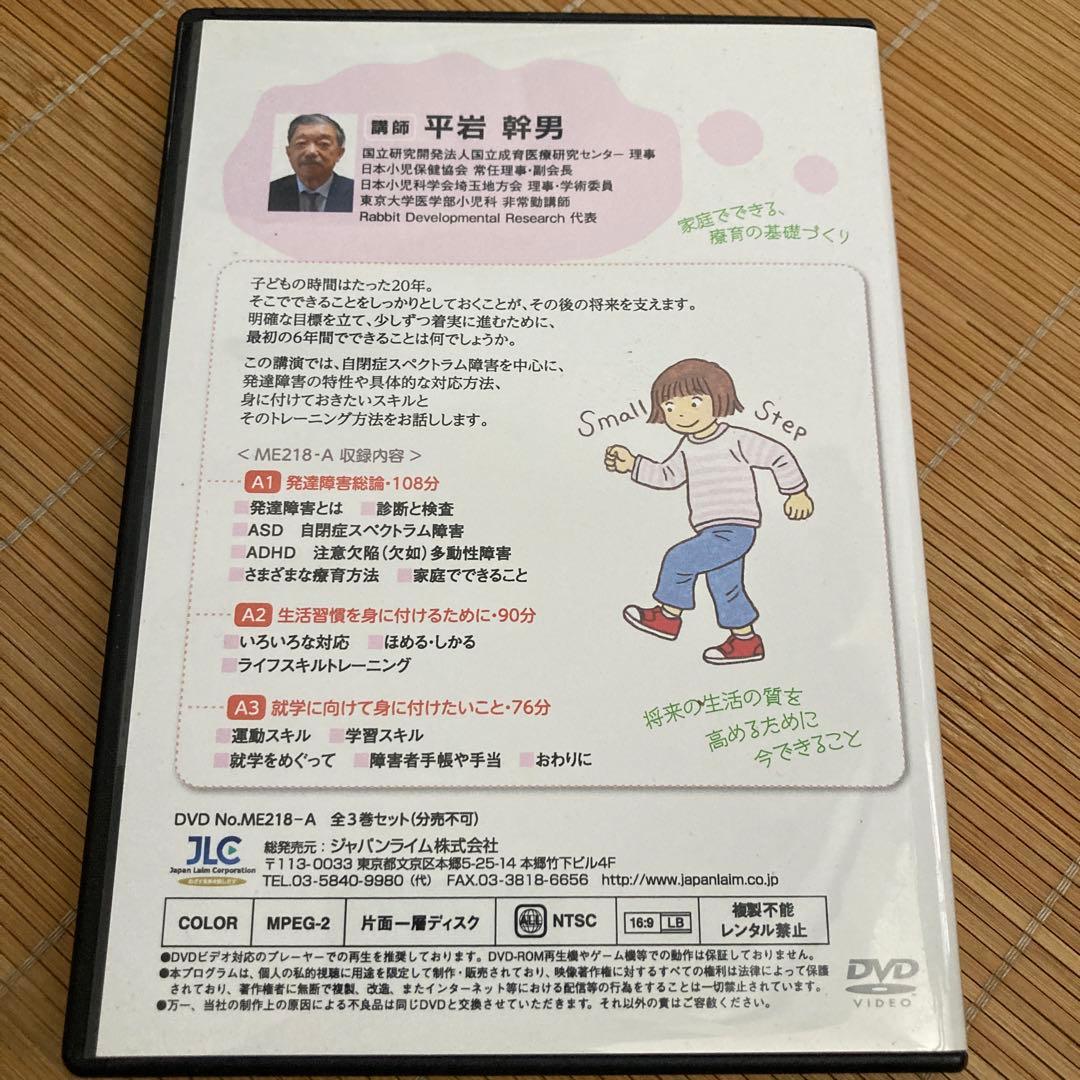 講師 平岩 幹男
国立研究開発法人国立成育医療研究センター 理事
日本小児保健協会 常任理事・副会長
日本小児科学会埼玉地方会 理事・学術委員
東京大学医学部小児科 非常勤講師
Rabbit Developmental Research 代表
家庭でできる、
療育の基礎づくり
子どもの時間はたった20年。
そこでできることをしっかりとしておくことが、その後の将来を支えます。
明確な目標を立て、少しずつ着実に進むために、
最初の6年間でできることは何でしょうか。
この講演では、自閉症スペクトラム障害を中心に、
発達障害の特性や具体的な対応方法、
身に付けておきたいスキルと
そのトレーニング方法をお話しします。
Small Step
< ME218-A 収録内容 >
A1 発達障害総論・108分
発達障害とは 診断と検査
ASD 自閉症スペクトラム障害
ADHD 注意欠陥(欠如)多動性障害
さまざまな療育方法 家庭でできること
A2 生活習慣を身に付けるために・90分
いろいろな対応 ほめる・しかる
ライフスキルトレーニング
A3 就学に向けて身に付けたいこと・76分
運動スキル 学習スキル
就学をめぐって 障害者手帳や手当 おわりに
将来の生活の質を
高めるために
今できること
DVD No.ME218-A 全3巻セット(分売不可)
JLC
Japan Laim Corporation
総発売元:ジャパンライム株式会社
〒113-0033 東京都文京区本郷5-25-14 本郷竹下ビル4F
TEL.03-5840-9980(代) FAX.03-3818-6656 http://www.japanlaim.co.jp
COLOR MPEG-2 片面一層ディスク ALL NTSC 16:9 LB 複製不能
レンタル禁止
●DVDビデオ対応のプレーヤーでの再生を推奨しております。DVD-ROM再生機やゲーム機等での動作は保証しておりません。
●本プログラムは、個人の私的視聴に用途を限定して制作・販売されており、映像著作権に対するすべての権利は法律によって保護
されており、著作権者に無断で複製、改造、またインターネット等における配信等の行為をすることは一切禁止されています。
●万一、当社の制作上の原因による不良品は同じDVDと交換させていただきます。それ以外の責はご容赦ください。
DVD
VIDEO™